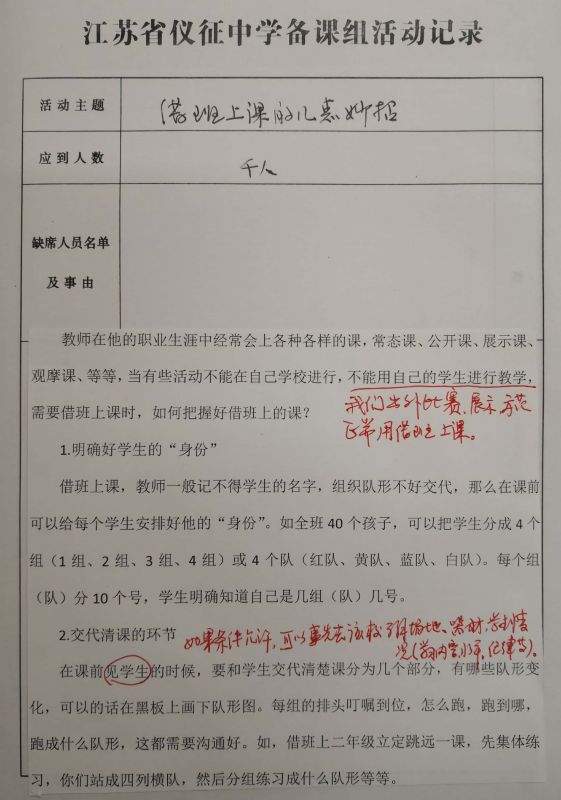 江苏省仪征中学备课组活动记录
活动主题
借班上课的几点妙招
应到人数
千人
缺席人员名单
及事由
教师在他的职业生涯中经常会上各种各样的课，常态课、公开课、展示课、
观摩课、等等，当有些活动不能在自己学校进行，不能用自己的学生进行教学，
需要借班上课时，如何把握好借班上的课？
我们出外比赛、展示、示范
正常用借班上课。
1.明确好学生的“身份”
借班上课，教师一般记不得学生的名字，组织队形不好交代，那么在课前
可以给每个学生安排好他的“身份”。如全班 40 个孩子，可以把学生分成 4 个
组（1 组、2 组、3 组、4 组）或 4 个队（红队、黄队、蓝队、白队）。每个组
（队）分 10 个号，学生明确知道自己是几组（队）几号。
2.交代清课的环节
如果条件允许，可以事先去该校了解场地、器材、学生情
况（学习内容、水平、纪律等）。
在课前见学生的时候，要和学生交代清楚课分为几个部分，有哪些队形变
化，可以的话在黑板上画下队形图。每组的排头叮嘱到位，怎么跑，跑到哪，
跑成什么队形，这都需要沟通好。如，借班上二年级立定跳远一课，先集体练
习，你们站成四列横队，然后分组练习成什么队形等等。